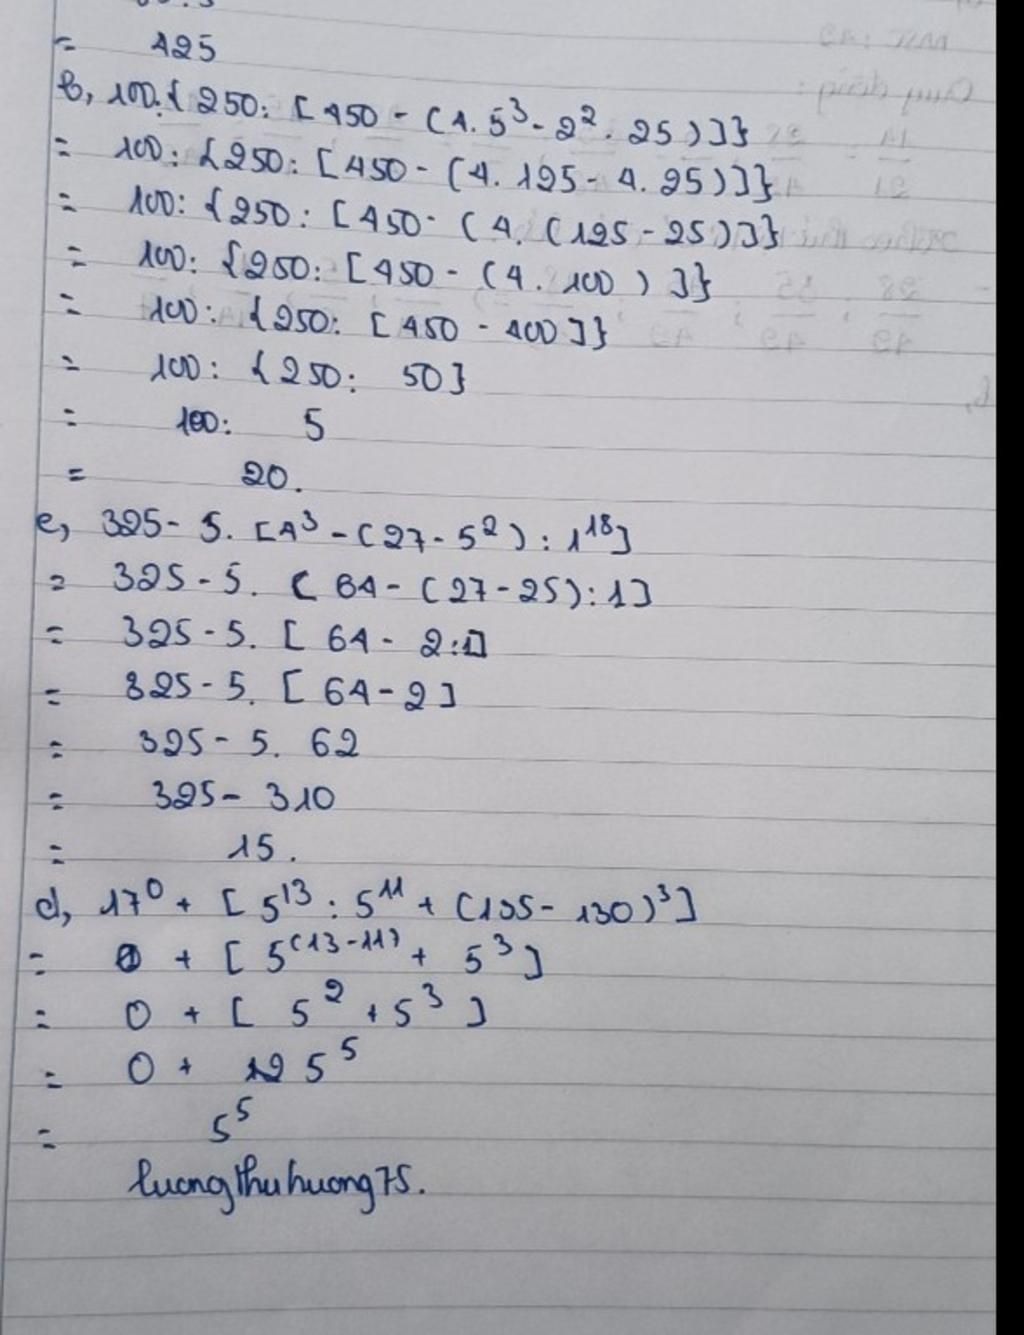 = 425
b, 100:{250: [450 - (4. 5³- 2². 25)]}
= 100: {250: [450 - (4. 125 - 4. 25)]}
= 100: {250: [450 - (4. (125 - 25)]}
= 100: {250: [450 - (4. 100)]}
= 100: {250: [450 - 400]}
= 100: {250: 50}
= 100: 5
= 20.
c, 325 - 5. [4³ - (27 - 5²) : 1¹⁸]
= 325 - 5. [64 - (27 - 25): 1]
= 325 - 5. [64 - 2:1]
= 325 - 5. [64 - 2]
= 325 - 5. 62
= 325 - 310
= 15.
d, 17⁰ + [5¹³ : 5¹¹ + (135 - 130)³]
= 0 + [5⁽¹³⁻¹¹⁾ + 5³]
= 0 + [5² + 5³]
= 0 + 5⁵
= 5⁵
luongthuhuong75.